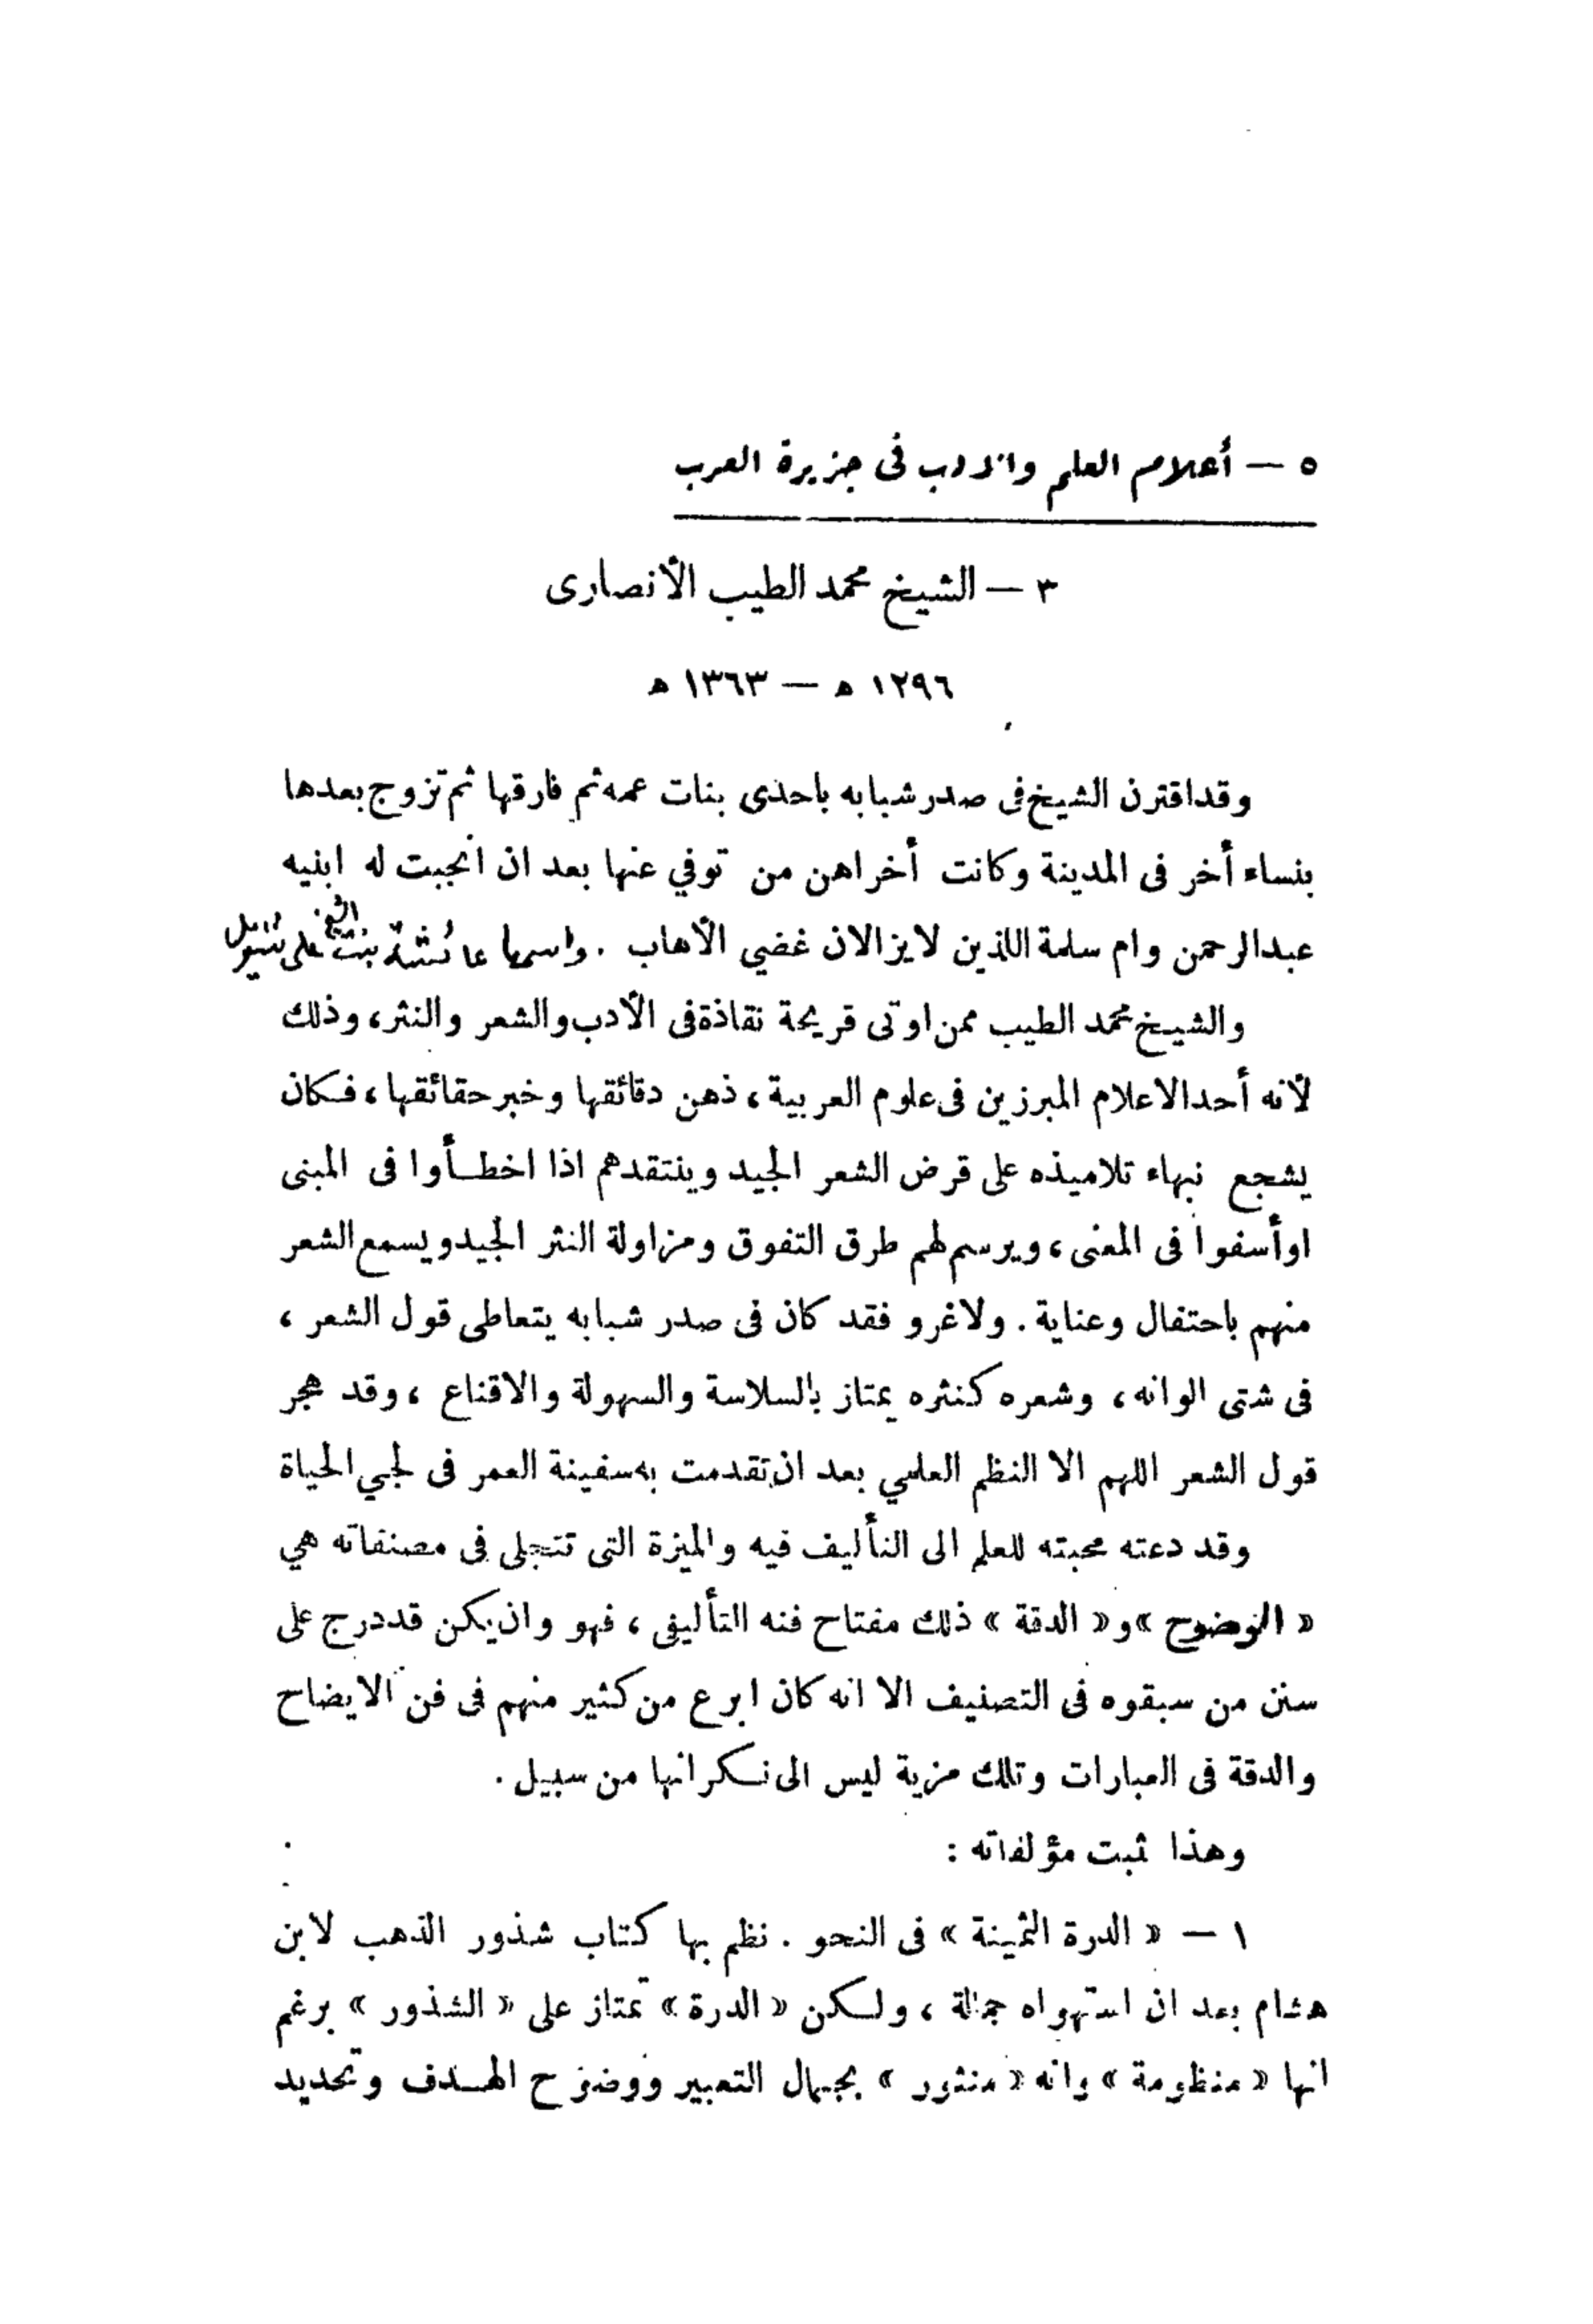 ٥ — أعلام العلم والادب فى جزيرة العرب
٣ — الشيخ محمد الطيب الأنصارى
١٢٩٦ ه — ١٣٦٣ ه
وقد اقترن الشيخ فى صدر شبابه باحدى بنات عمه ثم فارقها ثم تزوج بعدها
بنساء أخر فى المدينة وكانت أخراهن من توفي عنها بعد ان انجبت له ابنيه
عبدالرحمن وام سلمة اللذين لايزالان غضي الأهاب . واسمها عائشة بنت الشيخ على
والشيخ محمد الطيب ممن اوتى قريحة نقاذة فى الأدب والشعر والنثر، وذلك
لأنه أحد الاعلام المبرزين فى علوم العربية، ذهن دقائقها وخبر حقائقها، فكان
يشجع نبهاء تلاميذه على قرض الشعر الجيد وينتقدهم اذا اخطأوا فى المبنى
اوأسفوا فى المعنى، ويرسم لهم طرق التفوق ومزاولة النثر الجيد ويسمع الشعر
منهم باحتفال وعناية. ولاغرو فقد كان فى صدر شبابه يتعاطى قول الشعر ،
فى شتى الوانه، وشعره كنثره يمتاز بالسلاسة والسهولة والاقناع ، وقد هجر
قول الشعر اللهم الا النظم العلمي بعد ان تقدمت به سفينة العمر فى لجي الحياة
وقد دعته محبته للعلم الى التأليف فيه والميزة التى تتجلى فى مصنفاته هي
« الوضوح » و« الدقة » ذلك مفتاح فنه التأليفى ، فهو وان يكن قد درج على
سنن من سبقوه فى التصنيف الا انه كان ابرع من كثير منهم فى فن الايضاح
والدقة فى العبارات وتلك مزية ليس الى نكرانها من سبيل .
وهذا ثبت مؤلفاته :
١ — « الدرة الثمينة » فى النحو . نظم بها كتاب شذور الذهب لابن
هشام بعد ان استهواه جماله ، ولكن « الدرة » تمتاز على « الشذور » برغم
انها « منظومة » وانه « منثور » بجمال التعبير ووضوح الهدف وتحديد